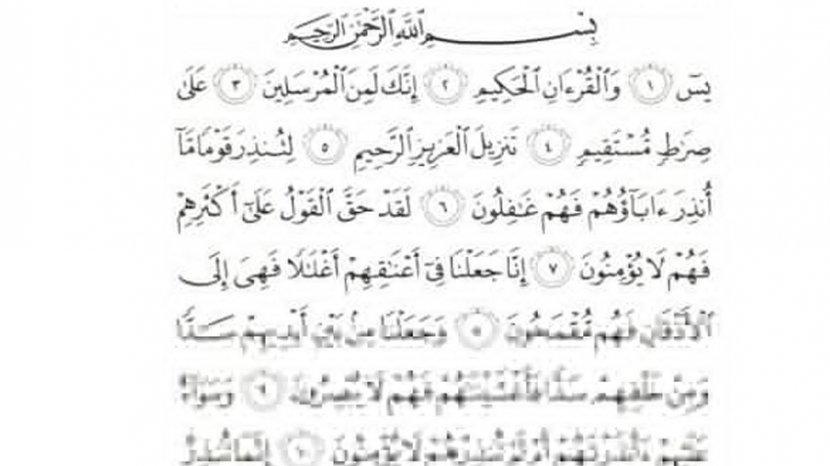 بِسْمِ ٱللَّهِ ٱلرَّحْمَٰنِ ٱلرَّحِيمِ
يسٓ ١ وَٱلْقُرْءَانِ ٱلْحَكِيمِ ٢ إِنَّكَ لَمِنَ ٱلْمُرْسَلِينَ ٣ عَلَىٰ
صِرَٰطٍ مُّسْتَقِيمٍ ٤ تَنزِيلَ ٱلْعَزِيزِ ٱلرَّحِيمِ ٥ لِتُنذِرَ قَوْمًا مَّآ
أُنذِرَ ءَابَآؤُهُمْ فَهُمْ غَٰفِلُونَ ٦ لَقَدْ حَقَّ ٱلْقَوْلُ عَلَىٰٓ أَكْثَرِهِمْ
فَهُمْ لَا يُؤْمِنُونَ ٧ إِنَّا جَعَلْنَا فِىٓ أَعْنَٰقِهِمْ أَغْلَٰلًا فَهِىَ إِلَى
ٱلْأَذْقَانِ فَهُم مُّقْمَحُونَ ٨ وَجَعَلْنَا مِنۢ بَيْنِ أَيْدِيهِمْ سَدًّا